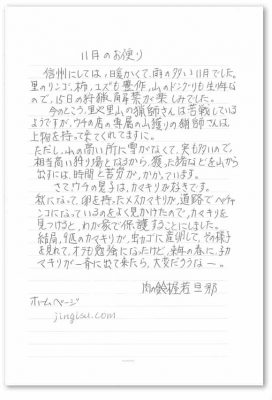 11月のお便り
信州にしては、暖かくて、雨の多い11月でした。
里のリンゴ、柿、ユズも豊作、山のドングリも生り年な
ので、15日の狩猟解禁が楽しみでした。
今のところ、里や里山の猟師さんは苦戦している
ようですが、ウチの店の専属の山獲りの猟師さんは
上物を持って来てくれてますに。
ただし、山の高い所に雪がなくて、実も多いので、
相当高い狩り場となるから、獲った猪などを山から
出すには、時間と苦労が、かかっています。
さて、ウチの息子は、カマキリが好きです。
秋になって、卵を持ったメスカマキリが、道路でペチャ
ンコになっているのをよく見かけたので、カマキリを
見つけると、わが家で保護することにしました。
結局、9匹のカマキリが、虫カゴに産卵して、その様子
を見れて、オラも勉強になったけど、来年の春に、子カ
マキリが一斉に出て来たら、大変だろうなー。
肉鈴木屋若旦那
ホームページ
jingisu.com